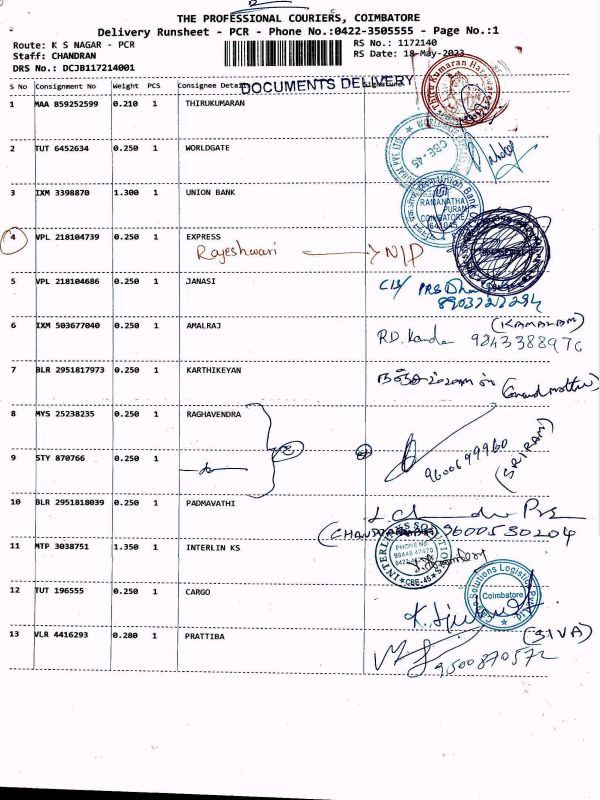 THE PROFESSIONAL COURIERS, COIMBATORE
Delivery Runsheet - PCR - Phone No.:0422-3505555 - Page No.:1
Route: K S NAGAR - PCR RS No.: 1172140
Staff: CHANDRAN RS Date: 18-May-2023
DRS No.: DCJB117214001
DOCUMENTS DELIVERY
S No Consignment No Weight PCS Consignee Details Signature
1 MAA 859252599 0.210 1 THIRUKUMARAN
Thiru Kumaran Hardwares
2 TUT 6452634 0.250 1 WORLDGATE
CBE-45
3 IXM 3398870 1.300 1 UNION BANK
Union Bank
RAMANATHA
PURAM
COIMBATORE
641045
4 VPL 218104739 0.250 1 EXPRESS
Rajeshwari N/P
5 VPL 218104686 0.250 1 JANASI
6 IXM 503677040 0.250 1 AMALRAJ
(KAMALAM)
R.D. 9243388976
7 BLR 2951817973 0.250 1 KARTHIKEYAN
(Grand mother)
8 MYS 25238235 0.250 1 RAGHAVENDRA
2
9600699960
(SRIRAM)
9 STY 870766 0.250 1
10 BLR 2951818039 0.250 1 PADMAVATHI
9600530204
11 MTP 3038751 1.350 1 INTERLIN KS
INTERLINKS SOLUTIONS
PHONE NO.
CBE-45
12 TUT 196555 0.250 1 CARGO
Solutions Logistics Pvt Ltd
Coimbatore
13 VLR 4416293 0.280 1 PRATTIBA
(SIVA)
9500870572